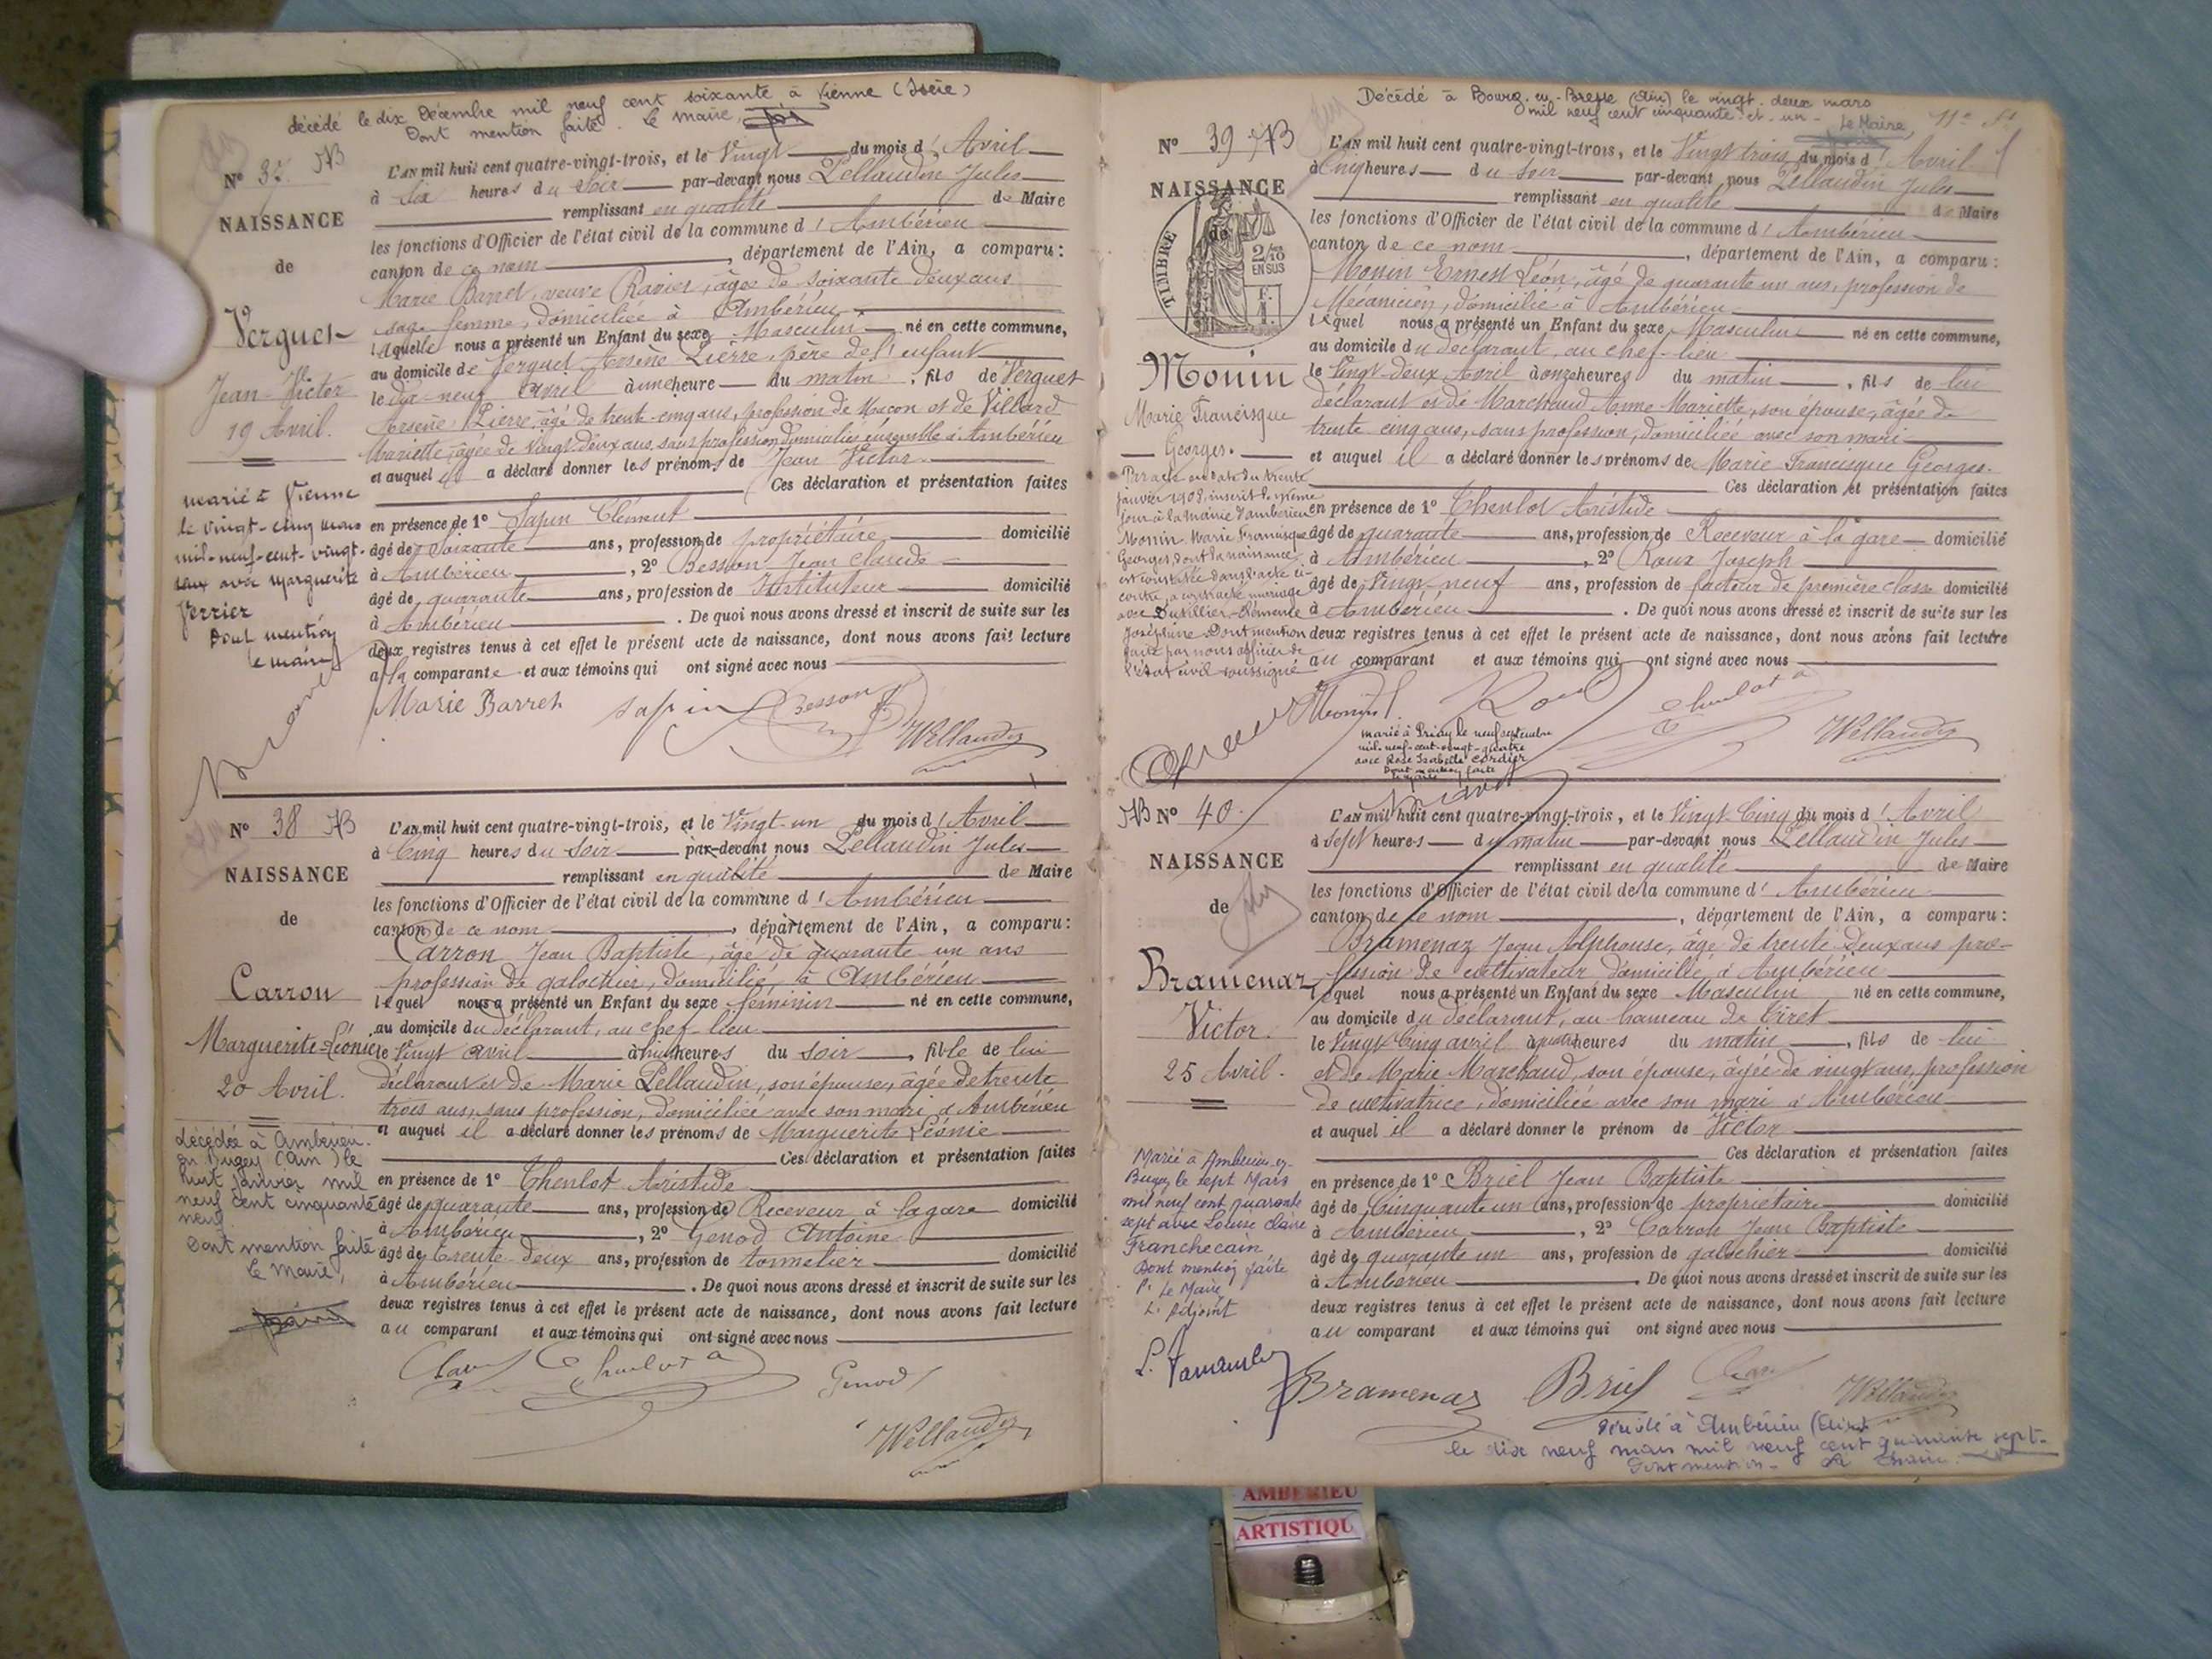 décédé le dix Décembre mil neuf cent soixante à Vienne (Isère)
Dont mention faite. Le Maire,
N° 37
NAISSANCE
de
Verguet
Jean-Victor
19 Avril.
L'AN mil huit cent quatre-vingt-trois, et le Vingt du mois d'Avril
à six heures du soir par-devant nous Pellaudin Jules
remplissant en qualité de Maire
les fonctions d'Officier de l'état civil de la commune d'Ambérieu
canton de ce nom, département de l'Ain, a comparu:
Marie Barret, veuve Ravier, âgée de soixante deux ans
sage femme, domiciliée à Ambérieu
laquelle nous a présenté un Enfant du sexe Masculin né en cette commune,
au domicile de Verguet Arsène Pierre, père de l'enfant
le dix-neuf avril à une heure du matin, fils de Verguet
Arsène Pierre, âgé de trente-cinq ans, profession de Maçon et de Villard
Mariette, âgée de vingt deux ans, sans profession, domiciliés ensemble à Ambérieu
et auquel a déclaré donner les prénoms de Jean Victor
Ces déclaration et présentation faites
en présence de 1° Sapin Clément
âgé de soixante ans, profession de propriétaire domicilié
à Ambérieu, 2° Besson Jean Claude
âgé de quarante ans, profession de Instituteur domicilié
à Ambérieu. De quoi nous avons dressé et inscrit de suite sur les
deux registres tenus à cet effet le présent acte de naissance, dont nous avons fait lecture
à la comparante et aux témoins qui ont signé avec nous
marié à Vienne
le vingt-cinq mars
mil-neuf-cent-vingt-
deux avec Marguerite
Verrier
Dont mention
le maire
Marie Barret Sapin Besson
N° 38
NAISSANCE
de
Carron
Marguerite-Léonie
20 Avril.
L'AN mil huit cent quatre-vingt-trois, et le Vingt-un du mois d'Avril
à Cinq heures du soir par-devant nous Pellaudin Jules
remplissant en qualité de Maire
les fonctions d'Officier de l'état civil de la commune d'Ambérieu
canton de ce nom, département de l'Ain, a comparu:
Carron Jean Baptiste, âgé de quarante un ans
profession de galochier, domicilié, à Ambérieu
lequel nous a présenté un Enfant du sexe féminin né en cette commune,
au domicile du déclarant, au chef-lieu
le Vingt avril à huit heures du soir, fille de lui
déclarant et de Marie Pellaudin, son épouse, âgée de trente
trois ans, sans profession, domiciliée avec son mari à Ambérieu
et auquel il a déclaré donner les prénoms de Marguerite Léonie
Ces déclaration et présentation faites
en présence de 1° Chenlot Aristide
âgé de quarante ans, profession de Receveur à la gare domicilié
à Ambérieu, 2° Genod Antoine
âgé de trente-deux ans, profession de tonnelier domicilié
à Ambérieu. De quoi nous avons dressé et inscrit de suite sur les
deux registres tenus à cet effet le présent acte de naissance, dont nous avons fait lecture
au comparant et aux témoins qui ont signé avec nous
décédée à Ambérieu-
en-Bugey (Ain) le
huit Janvier mil
neuf cent cinquante
neuf
Dont mention faite
Le Maire,
Genod
Décédé à Bourg-en-Bresse (Ain) le vingt-deux mars
mil neuf cent cinquante-et-un- Le Maire,
N° 39
NAISSANCE
de
TIMBRE
2/10
EN SUS
Monin
Marie Francisque
Georges.
L'AN mil huit cent quatre-vingt-trois, et le Vingt trois du mois d'Avril
à Cinq heures du soir par-devant nous Pellaudin Jules
remplissant en qualité de Maire
les fonctions d'Officier de l'état civil de la commune d'Ambérieu
canton de ce nom, département de l'Ain, a comparu:
Monin Ernest Léon, âgé de quarante un ans, profession de
Mécanicien, domicilié à Ambérieu
lequel nous a présenté un Enfant du sexe Masculin né en cette commune,
au domicile du déclarant, au chef-lieu
le Vingt-deux Avril à onze heures du matin, fils de lui
déclarant et de Marchand Anne Mariette, son épouse, âgée de
trente cinq ans, sans profession, domiciliée avec son mari
et auquel il a déclaré donner les prénoms de Marie Francisque Georges.
Ces déclaration et présentation faites
en présence de 1° Chenlot Aristide
âgé de quarante ans, profession de Receveur à la gare domicilié
à Ambérieu, 2° Roux Joseph
âgé de Vingt-neuf ans, profession de facteur de première classe domicilié
à Ambérieu. De quoi nous avons dressé et inscrit de suite sur les
deux registres tenus à cet effet le présent acte de naissance, dont nous avons fait lecture
au comparant et aux témoins qui ont signé avec nous
Par acte en date du trente
janvier 1908, inscrit le même
jour à la mairie d'Ambérieu
Monin Marie Francisque
Georges, dont la naissance
est constatée dans l'acte ci-
contre, a contracté mariage
avec Dutillier Clémence
Joséphine. Dont mention
faite par nous officier de
l'état civil soussigné
marié à Priay le neuf septembre
mil-neuf-cent-vingt-quatre
avec Rose Isabelle Cordier
Dont mention faite
N° 40.
NAISSANCE
de
Bramenaz
Victor.
25 Avril.
L'AN mil huit cent quatre-vingt-trois, et le Vingt Cinq du mois d'Avril
à Sept heures du matin par-devant nous Pellaudin Jules
remplissant en qualité de Maire
les fonctions d'Officier de l'état civil de la commune d'Ambérieu
canton de ce nom, département de l'Ain, a comparu:
Bramenaz Jean Alphonse, âgé de trente-deux ans pro-
fession de cultivateur domicilié à Ambérieu
lequel nous a présenté un Enfant du sexe Masculin né en cette commune,
au domicile du déclarant, au hameau de Tiret
le Vingt Cinq avril à quatre heures du matin, fils de lui
et de Marie Marchand, son épouse, âgée de vingt ans, profession
de cultivatrice, domiciliée avec son mari à Ambérieu
et auquel il a déclaré donner le prénom de Victor
Ces déclaration et présentation faites
en présence de 1° Briel Jean Baptiste
âgé de Cinquante un ans, profession de propriétaire domicilié
à Ambérieu, 2° Carron Jean Baptiste
âgé de quarante un ans, profession de galochier domicilié
à Ambérieu. De quoi nous avons dressé et inscrit de suite sur les
deux registres tenus à cet effet le présent acte de naissance, dont nous avons fait lecture
au comparant et aux témoins qui ont signé avec nous
Marié à Ambérieu-en-
Bugey le sept Mars
mil neuf cent quarante
sept avec Louise Claire
Franchecain
Dont mention faite
Pr Le Maire
L'Adjoint
Bramenaz Briel
Décédé à Ambérieu (Ain)
le dix neuf mars mil neuf cent quarante sept.
Dont mention - Le Maire.
AMBERIEU
ARTISTIQU